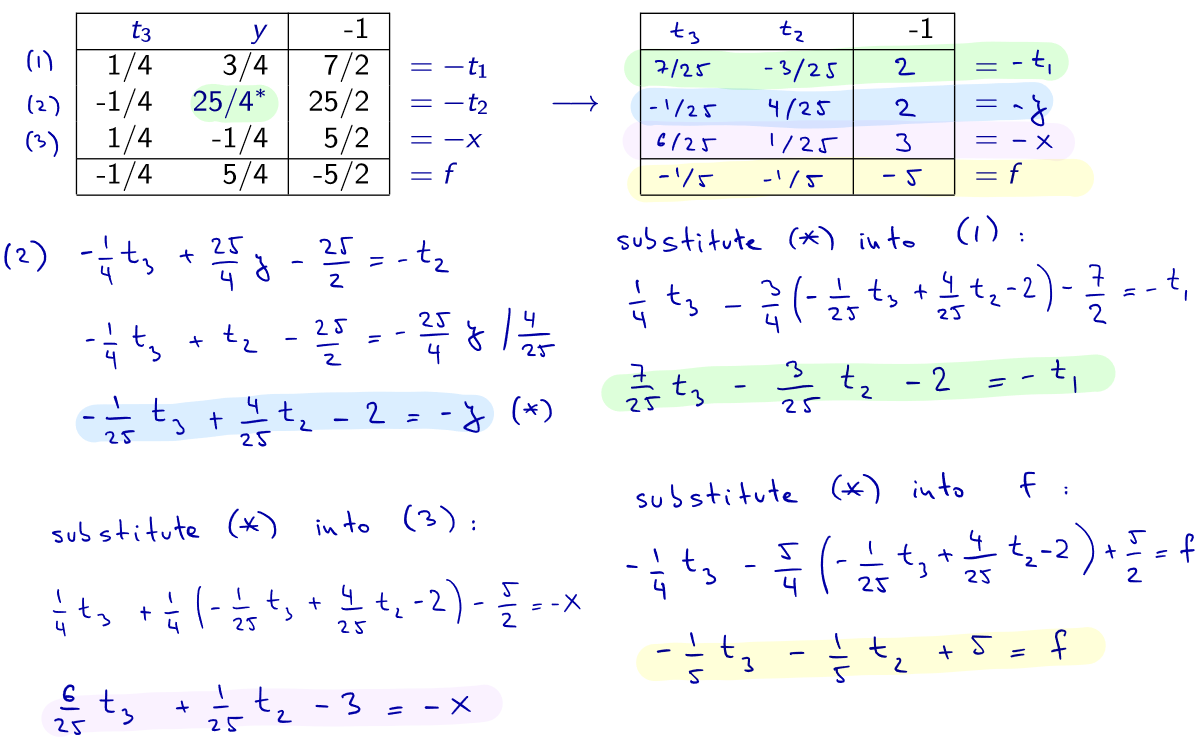 t₃ y -1
(1) 1/4 3/4 7/2 = −t₁
(2) -1/4 25/4* 25/2 = −t₂
(3) 1/4 -1/4 5/2 = −x
-1/4 5/4 -5/2 = f
→
t₃ t₂ -1
7/25 -3/25 2 = -t₁
-1/25 4/25 2 = -y
6/25 1/25 3 = -x
-1/5 -1/5 -5 = f
(2) -1/4 t₃ + 25/4 y - 25/2 = -t₂
-1/4 t₃ + t₂ - 25/2 = -25/4 y | 4/25
-1/25 t₃ + 4/25 t₂ - 2 = -y (*)
substitute (*) into (3):
1/4 t₃ + 1/4 (-1/25 t₃ + 4/25 t₂ - 2) - 5/2 = -x
6/25 t₃ + 1/25 t₂ - 3 = -x
substitute (*) into (1):
1/4 t₃ - 3/4 (-1/25 t₃ + 4/25 t₂ - 2) - 7/2 = -t₁
7/25 t₃ - 3/25 t₂ - 2 = -t₁
substitute (*) into f:
-1/4 t₃ - 5/4 (-1/25 t₃ + 4/25 t₂ - 2) + 5/2 = f
-1/5 t₃ - 1/5 t₂ + 5 = f